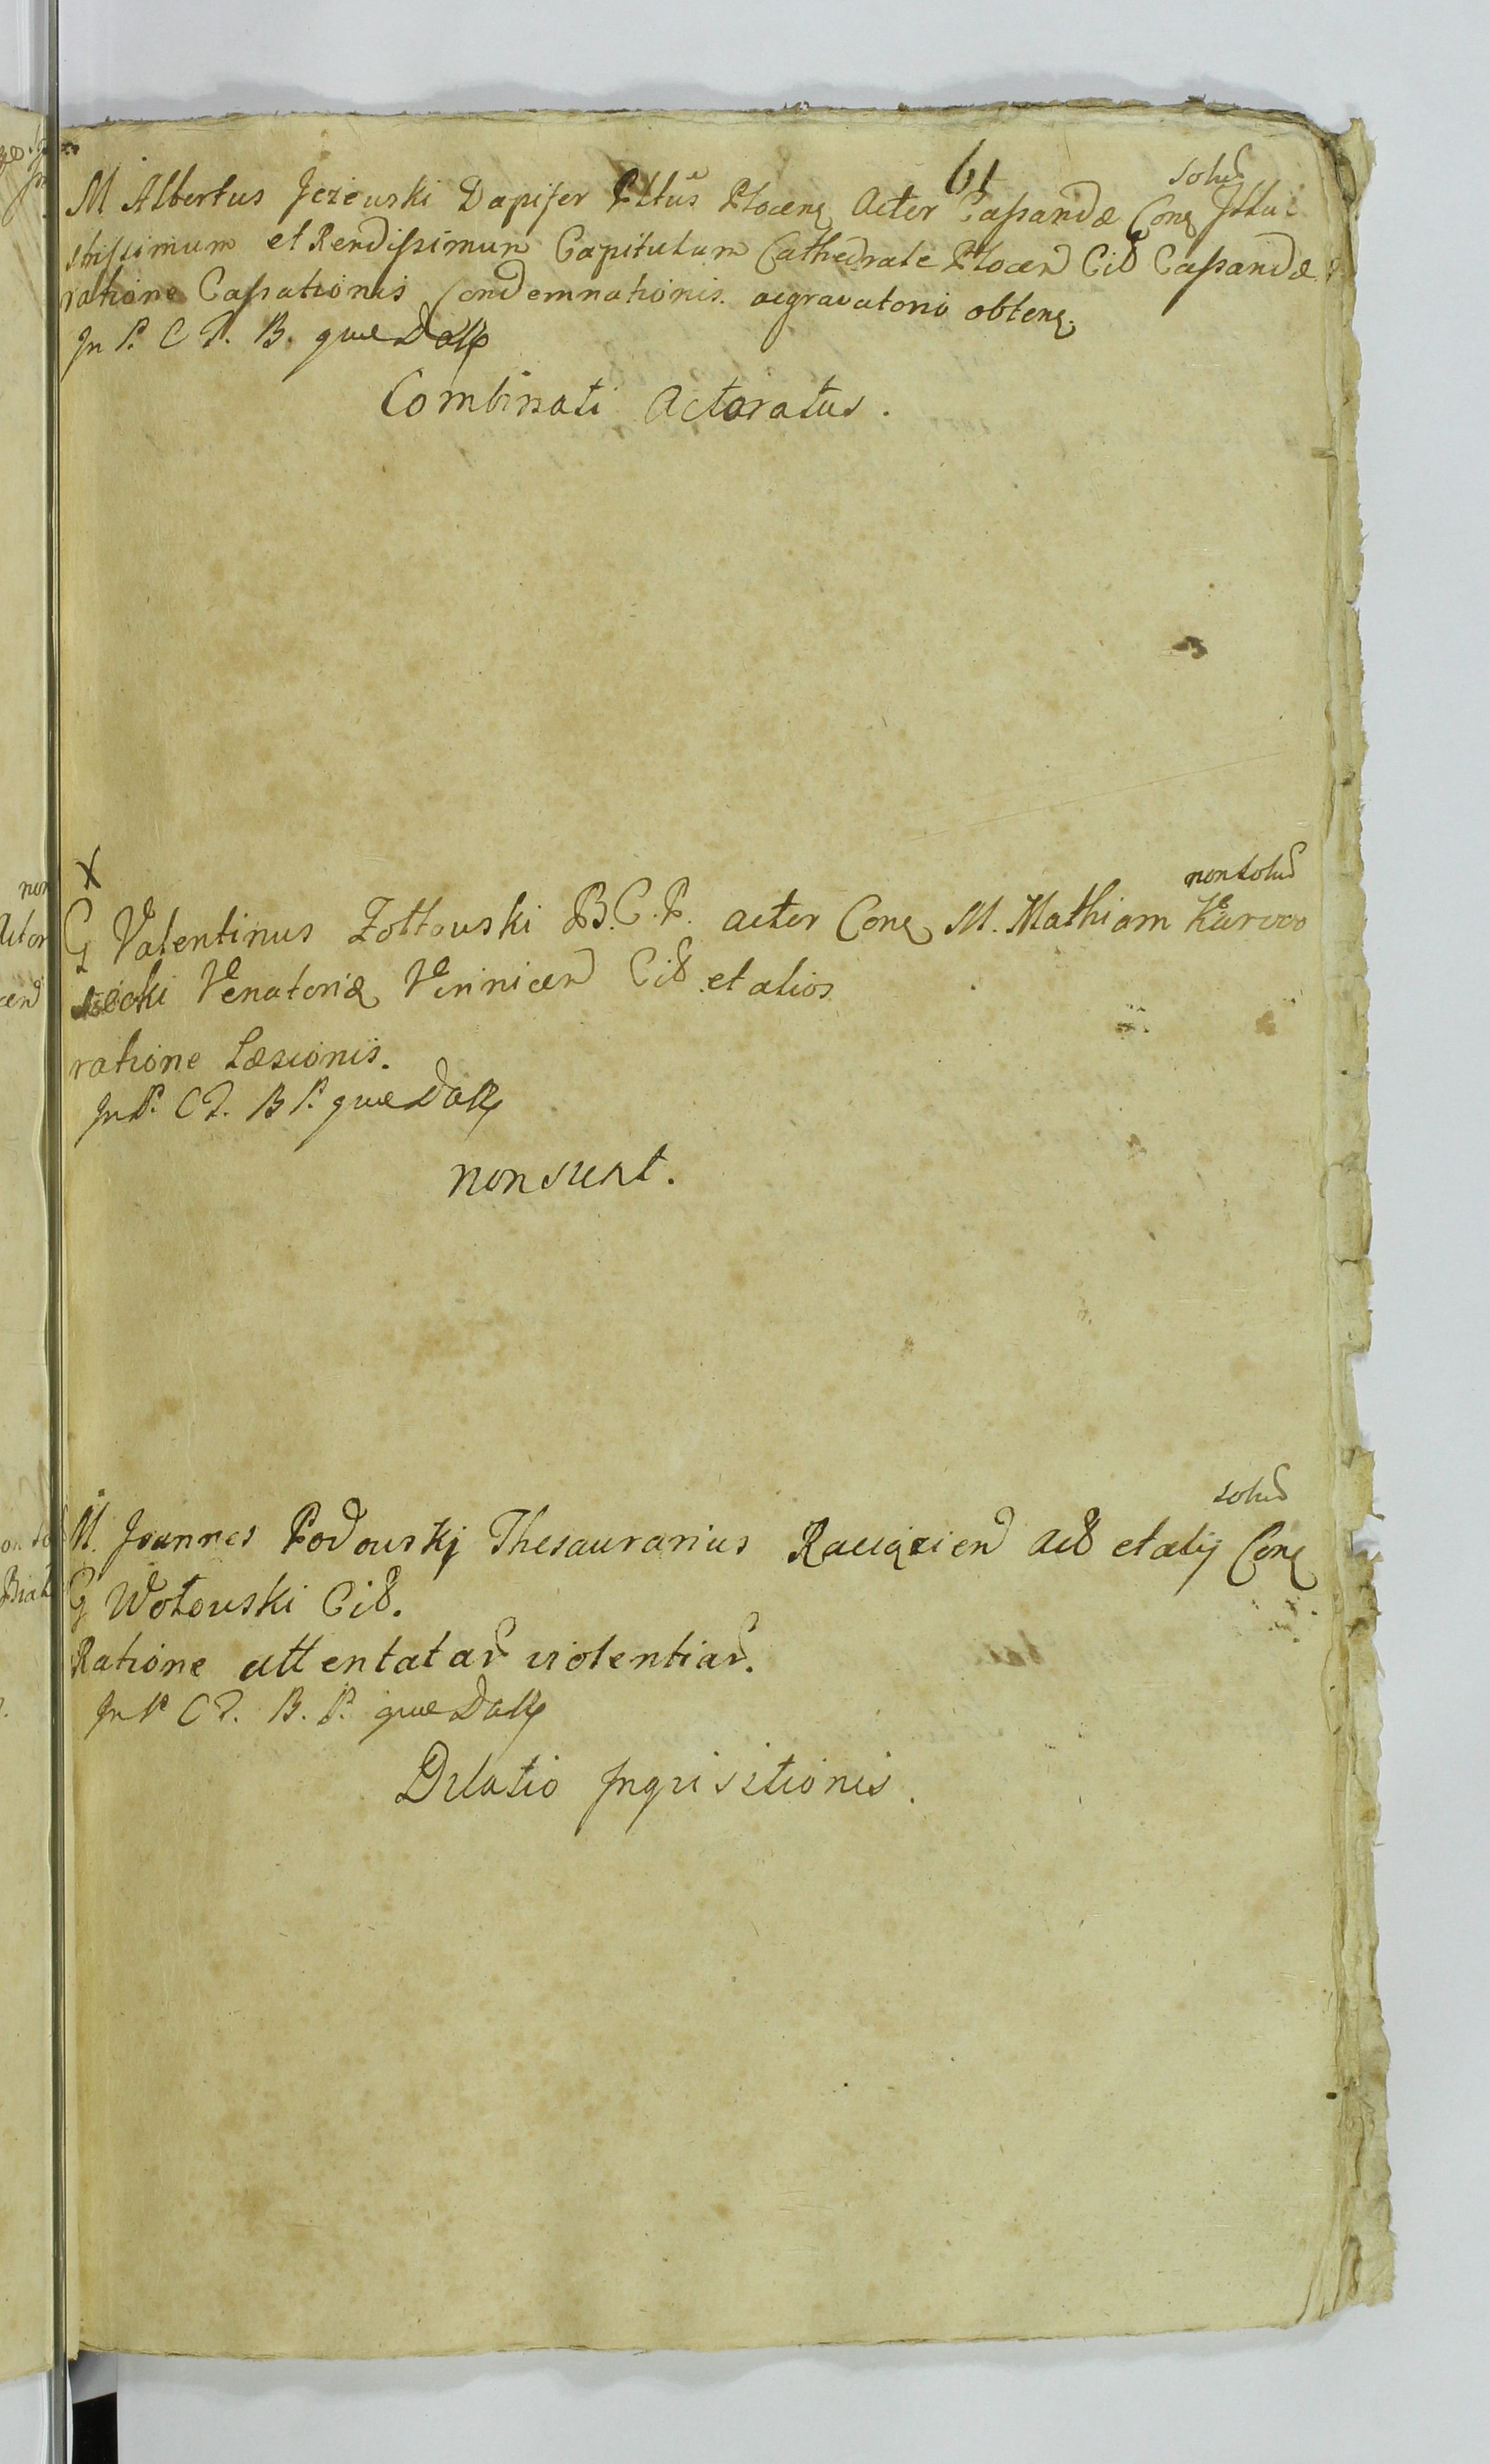 61
solud
M Albertus Jezewski Dapifer Pltus Plocen Actor Cassandæ Con Illu
strissimum et Rendissimum Capitulum Cathedrale Plocen Cit Cassandæ
ratione Cassationis Condemnationis. aggravatorio obten.
In P. C T. B. quæ
Combinati Actoratus.
X
non solud
G Valentinus Zoltowski B. C. P. actor Con M. Mathiam Karwo
siecki Venatoris Vinnicen Cit et alios
ratione Læsionis.
In P. C T. B P. quæ
non sunt.
solud
M. Joannes Podowskj Thesaurarius Raciązien act et alij Con
G Wolowski Cit.
Ratione attentatar violentiar.
In P C T. B. P. quæ
Dilatio Inquisitionis.